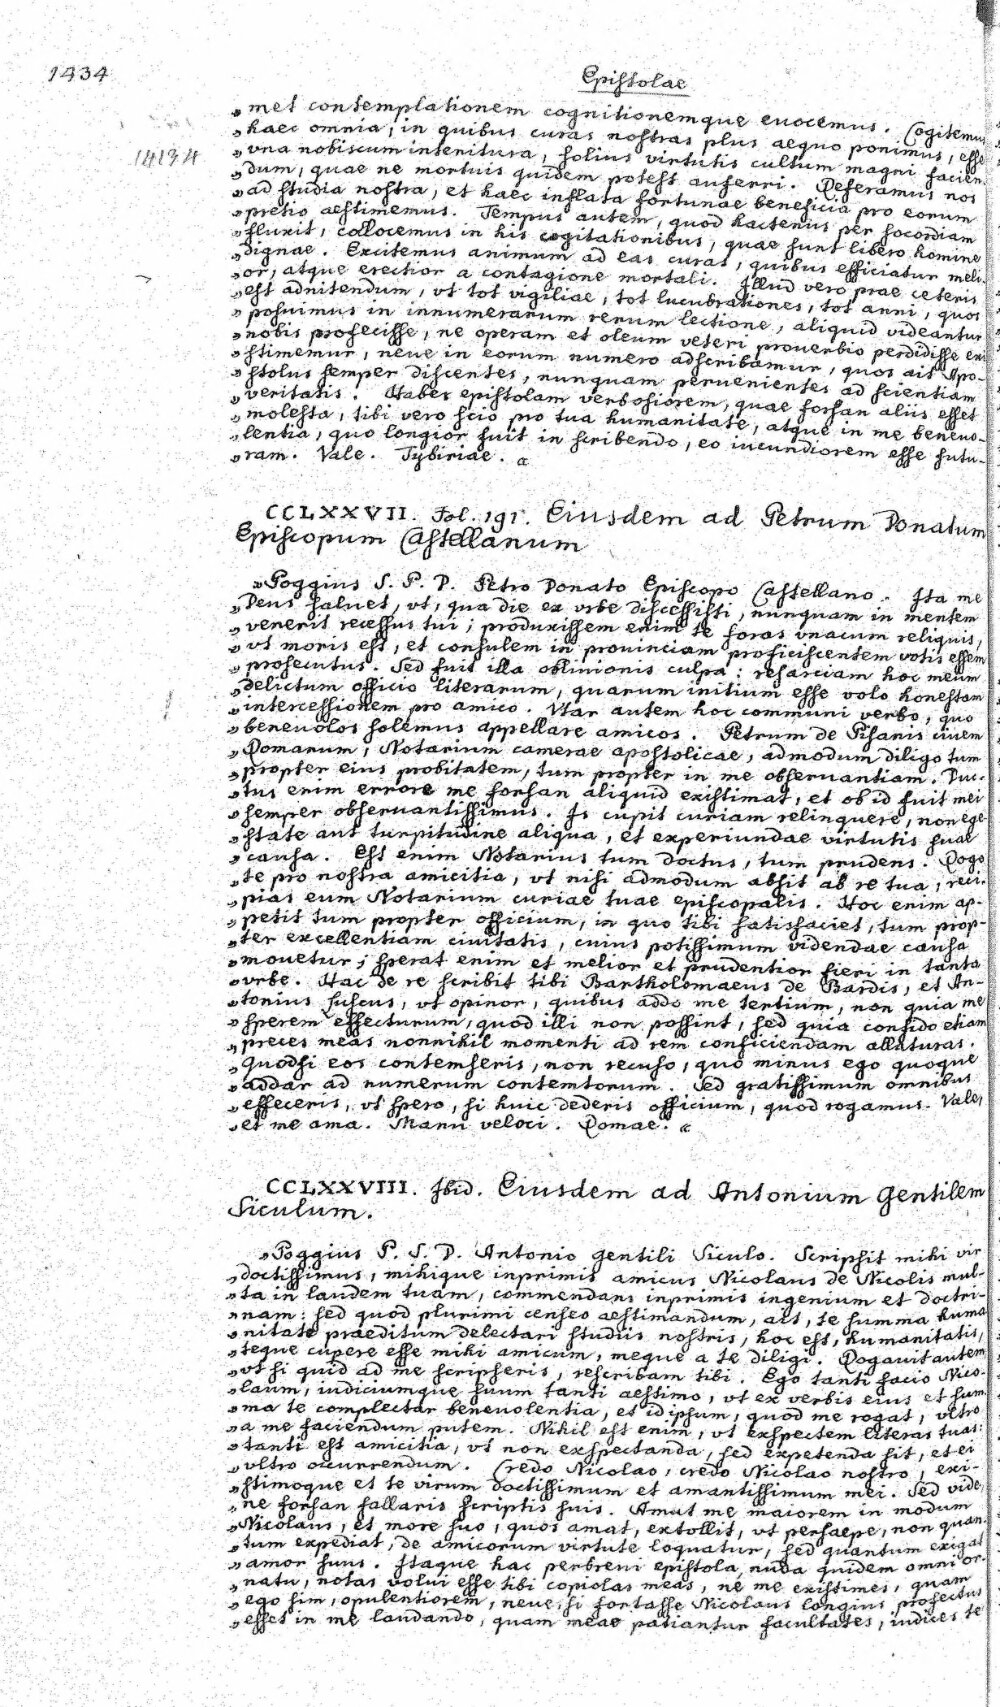 1434
Epistolae
„met contemplationem cognitionemque euocemus. Cogitemus
„haec omnia, in quibus curas nostras plus aequo ponimus, esse
14134
„vna nobiscum interitura, solius virtutis cultum magni facien-
„dum, quae ne mortuis quidem potest auferri. Referamus nos
„ad studia nostra, et haec inflata fortunae beneficia pro eorum
„pretio aestimemus. Tempus autem, quod hactenus per socordiam
„fluxit, collocemus in his cogitationibus, quae sunt libero homine
„dignae. Excitemus animum ad eas curas, quibus efficiatur meli-
„or, atque erectior a contagione mortali. Illud vero prae ceteris
„est adnitendum, vt tot vigiliae, tot lucubrationes, tot anni, quos
„posuimus in innumerarum rerum lectione, aliquid videantur
„nobis profecisse, ne operam et oleum veteri prouerbio perdidisse exi-
„stimemur, neue in eorum numero adscribamur, quos ait Apo-
„stolus semper discentes, nunquam peruenientes ad scientiam
„veritatis. Habes epistolam verbosiorem, quae forsan aliis esset
„molesta, tibi vero scio pro tua humanitate, atque in me beneuo-
„lentia, quo longior fuit in scribendo, eo iucundiorem esse futu-
„ram. Vale. Tybiriae. “
CCLXXVII. Fol. 191. Eiusdem ad Petrum Donatum
Episcopum Castellanum
„Poggius S. P. D. Petro Donato Episcopo Castellano. Ita me
„Deus saluet, vt, qua die ex vrbe discessisti, nunquam in mentem
„venerit recessus tui; produxissem enim te foras vnacum reliquis,
„vt moris est, et consulem in prouinciam proficiscentem votis essem
„prosecutus. Sed fuit illa obliuionis culpa: resarciam hoc meum
„delictum officio literarum, quarum initium esse volo honestam
„intercessionem pro amico. Vtar autem hoc communi verbo, quo
„beneuolos solemus appellare amicos. Petrum de Pisanis ciuem
„Romanum, Notarium camerae apostolicae, admodum diligo tum
„propter eius probitatem, tum propter in me obseruantiam. Duc-
„tus enim errore me forsan aliquid existimat, et ob id fuit mei
„semper obseruantissimus. Is cupit curiam relinquere, non ege-
„state aut turpitudine aliqua, et experiundae virtutis suae
„causa. Est enim Notarius tum doctus, tum prudens. Rogo
„te pro nostra amicitia, vt nisi admodum absit ab re tua, reci-
„pias eum Notarium curiae tuae episcopalis. Hoc enim ap-
„petit tum propter officium, in quo tibi satisfaciet, tum prop-
„ter excellentiam ciuitatis, cuius potissimum videndae causa
„mouetur; sperat enim et melior et prudentior fieri in tanta
„vrbe. Hac de re scribit tibi Bartholomaeus de Bardis, et An-
„tonius fuscus, vt opinor, quibus addo me tertium, non quia me
„sperem effecturum, quod illi non possint, sed quia confido etiam
„preces meas nonnihil momenti ad rem conficiendam allaturas.
„Quodsi eos contemseris, non recuso, quo minus ego quoque
„addar ad numerum contemtorum. Sed gratissimum omnibus
„effeceris, vt spero, si huic dederis officium, quod rogamus. Vale,
„et me ama. Manu veloci. Romae. “
CCLXXVIII. Ibid. Eiusdem ad Antonium Gentilem
Siculum.
„Poggius P. S. D. Antonio Gentili Siculo. Scripsit mihi vir
„doctissimus, mihique inprimis amicus Nicolaus de Nicolis mul-
„ta in laudem tuam, commendans inprimis ingenium et doctri-
„nam: sed quod plurimi censeo aestimandum, ait, te summa huma
„nitate praeditum delectari studiis nostris, hoc est, humanitatis,
„teque cupere esse mihi amicum, meque a te diligi. Rogauit autem
„vt si quid ad me scripseris, rescribam tibi. Ego tanti facio Nico-
„laum, iudiciumque suum tanti aestimo, vt ex verbis eius et sum
„ma te complectar beneuolentia, et id ipsum, quod me rogat, vltro
„a me faciendum putem. Nihil est enim, vt exspectem literas tuas:
„tanti est amicitia, vt non exspectanda, sed expetenda sit, et ei
„vltro occurrendum. Credo Nicolao, credo Nicolao nostro, exi-
„stimoque et te virum doctissimum et amantissimum mei. Sed vide,
„ne forsan fallaris scriptis suis. Amat me maiorem in modum
„Nicolaus, et more suo, quos amat, extollit, vt persaepe, non quan-
„tum expediat, de amicorum virtute loquatur, sed quantum exigat
„amor suus. Itaque hac perbreui epistola, nuda quidem omni or-
„natu, notas volui esse tibi copiolas meas, ne me existimes, quam
„ego sim, opulentiorem, neue, si fortasse Nicolaus longius profectus
„esset in me laudando, quam meae patiantur facultates, iudices te